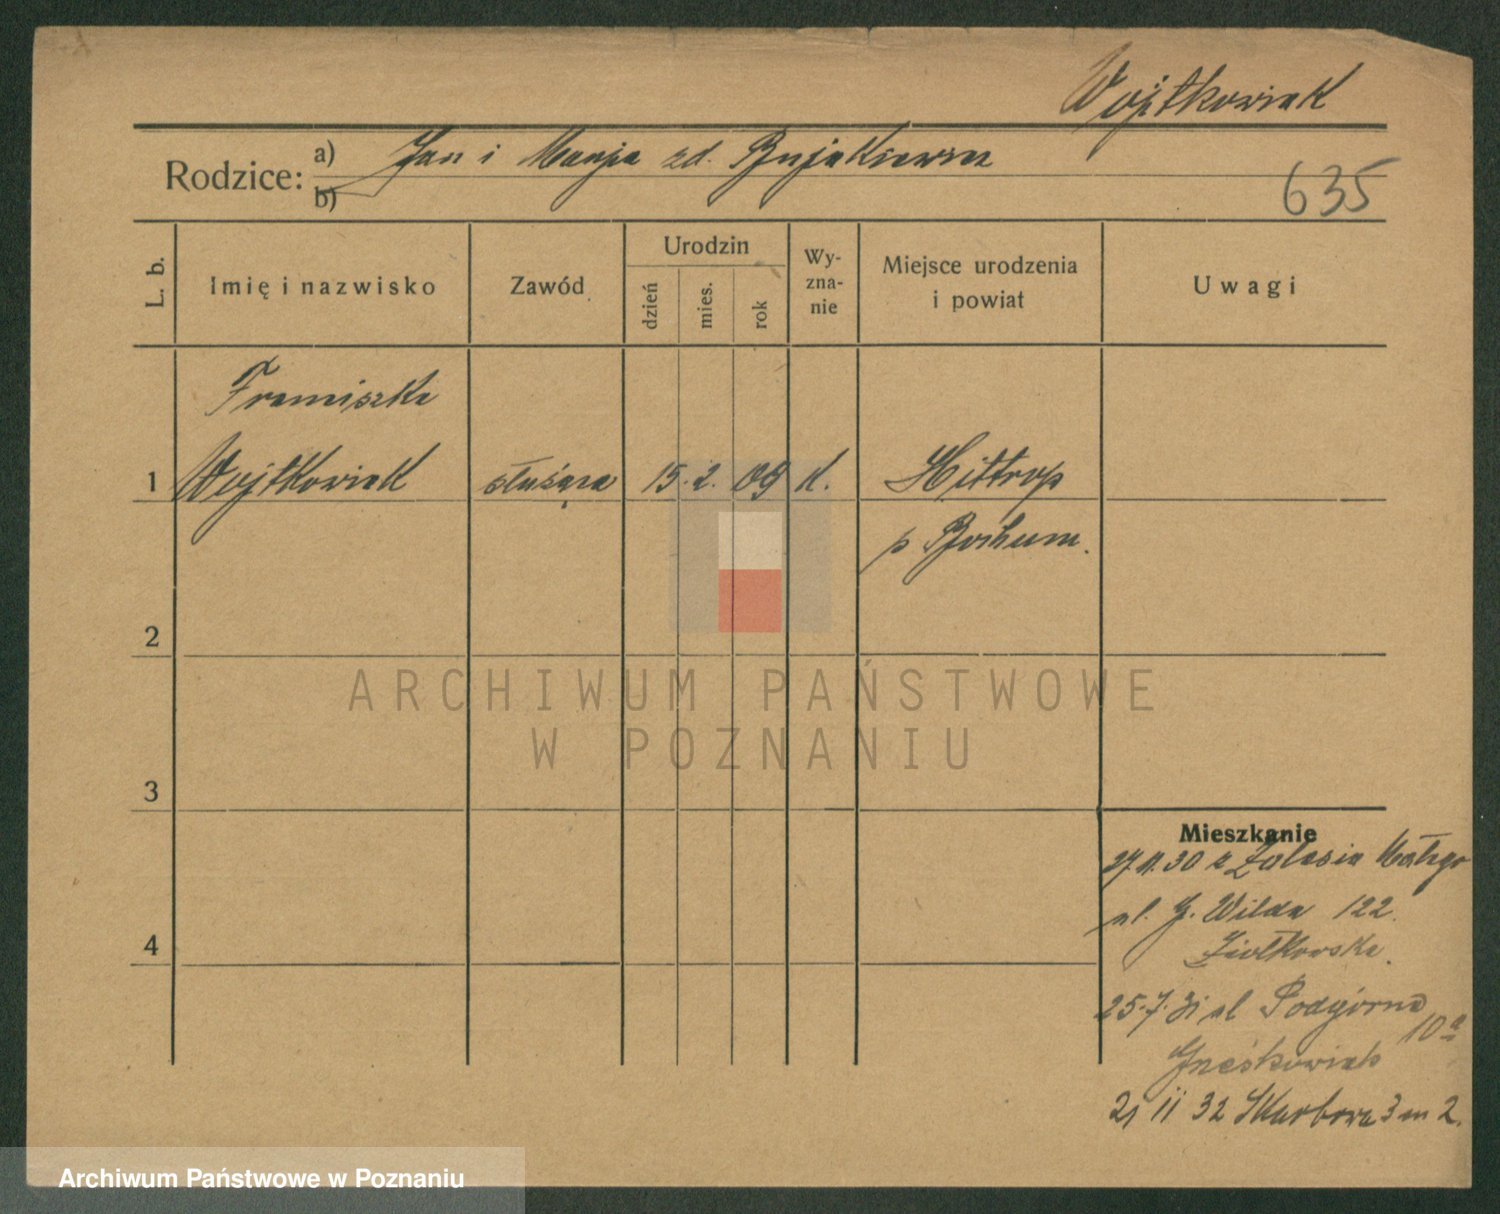 Wojtkowiak
Rodzice: a) Jan i Marja zd. Bujakiewicz
b)
635
L. b.
Imię i nazwisko
Zawód
Urodzin
dzień
mies.
rok
Wy-
zna-
nie
Miejsce urodzenia
i powiat
Uwagi
Franciszka
1 Wojtkowiak służąca 15. 2. 09 k. Hiltrop
p Bochum.
2
3
4
Mieszkanie
27.11.30 z Zalesia Małego
ul. G. Wilda 122.
Ziołkowska.
25.7.31 ul Podgórna 10a
Grześkowiak
21 11 32 Skarbowa 3 m 2.
ARCHIWUM PAŃSTWOWE
W POZNANIU
Archiwum Państwowe w Poznaniu